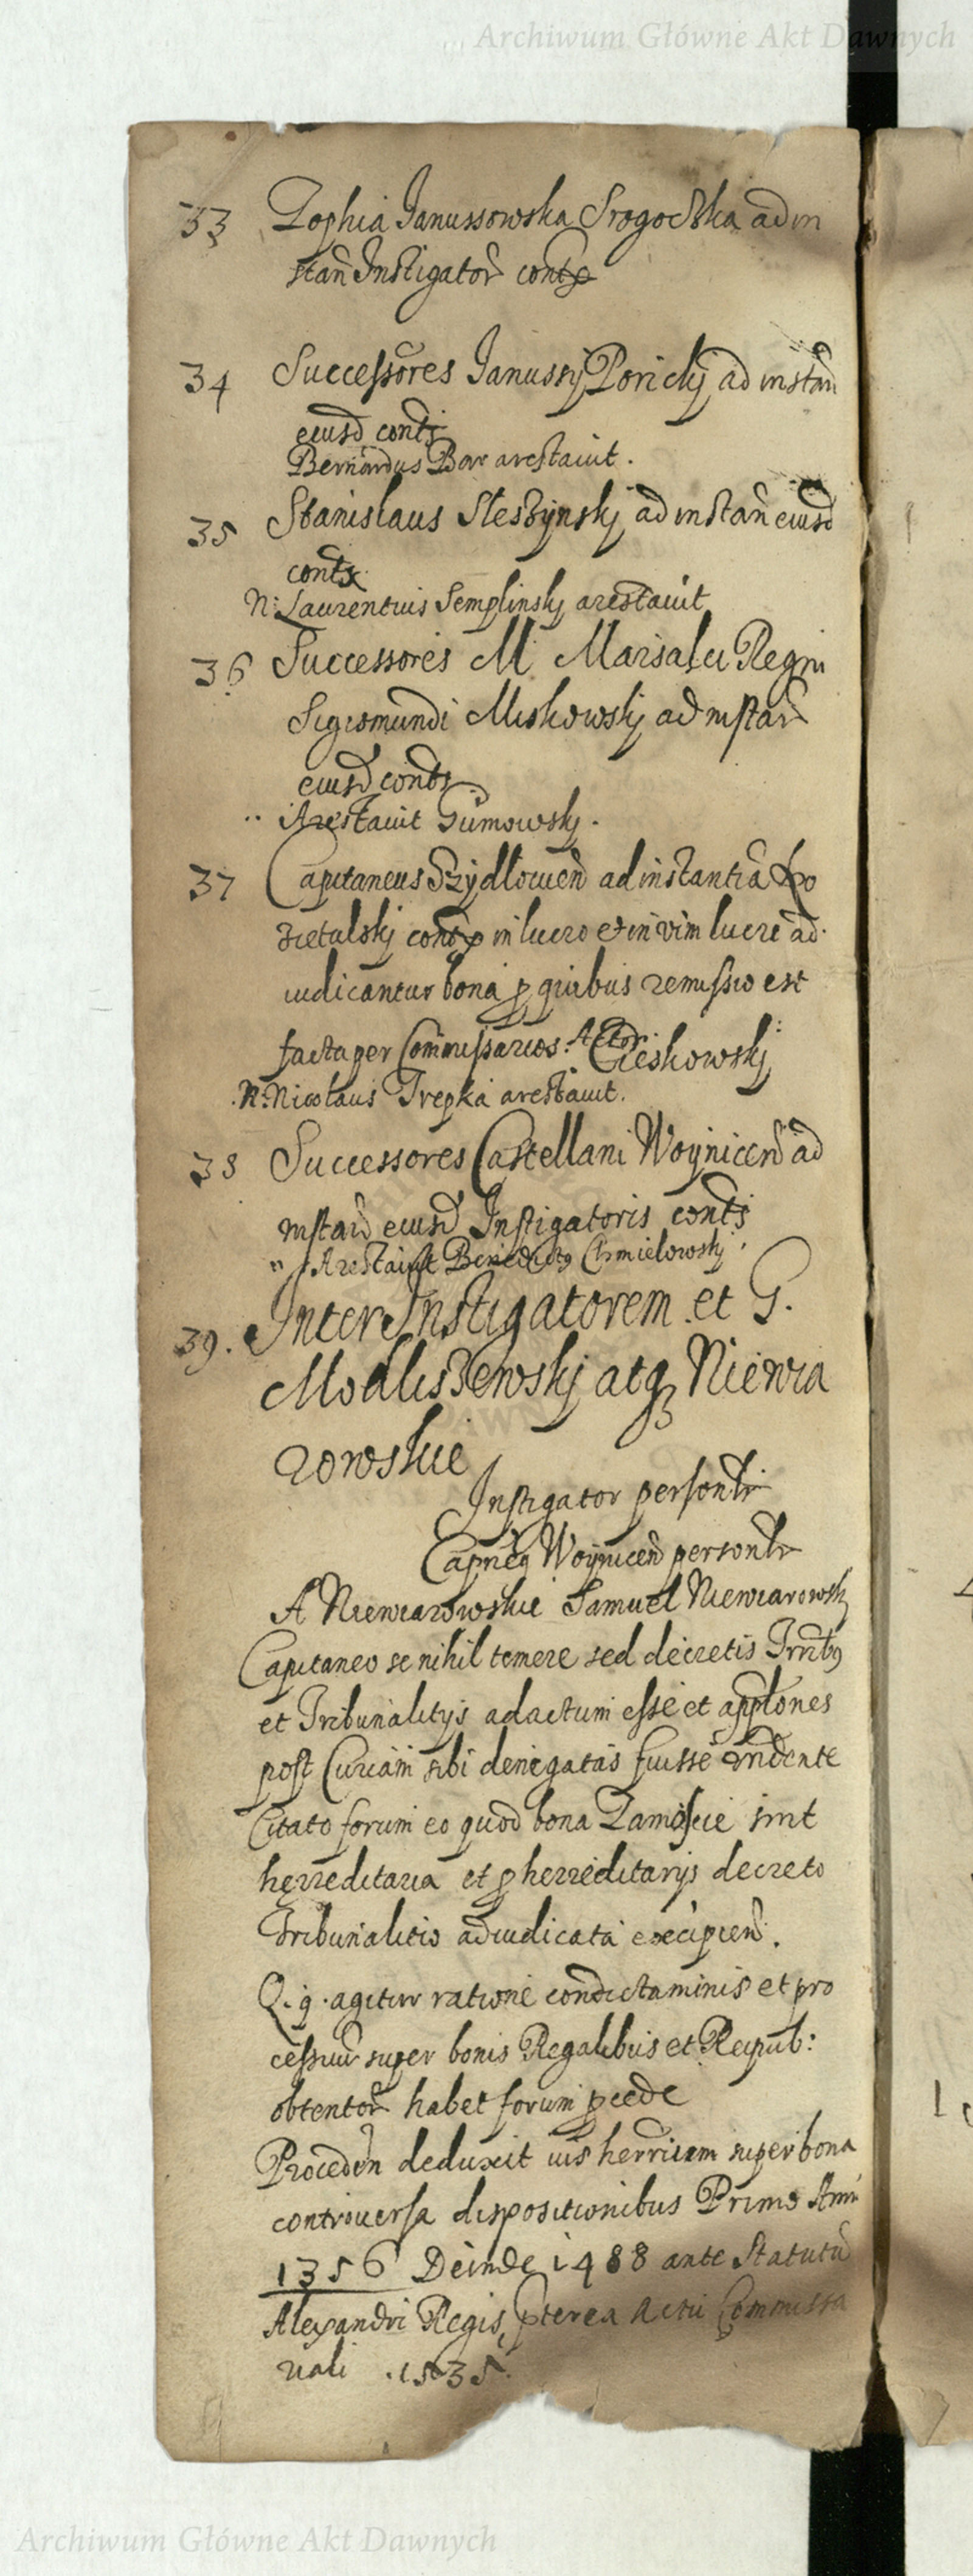 Archiwum Główne Akt Dawnych
33 Zophia Janussowska Srogoczka ad in
stan̄ Instigator̄ contx
34 Successores Janussij Poricky ad instan̄
eiusd contx
Bernardus Bar arestauit.
35 Stanislaus Sleszÿnskj ad instan̄ eiusd
contx
N: Laurentius Semplinskj arestauit
36 Successores M. Marsalci Regni
Sigismundi Miskowskj ad instan̄
eiusd contx
Arestauit Gumowskj.
37 Capitaneus Szÿdlouien̄ ad instantiā
contx in lucro et in vim lucri ad
iudicantur bona p quibus remissio est
facta per Commissarios. Actor Cieskowskj
N: Nicolaus Trepka arestauit.
38 Successores Castellani Woynicen̄ ad
instan̄ eiusd Instigatoris contx
Arestauit Benedictus Chmielowskj
39. Inter Instigatorem et G.
Modliszewskj atq Niewia
rowskie
Instigator personlr
Capneus Woynicen̄ personlr
A Niewiarowskie Samuel Niewiarowskj
Capitaneo se nihil temere sed decretis
et Tribunalitijs adactum esse et applones
post Curiam sibi denegatas fuisse
Citato forum eo quod bona Zamoscie sint
herreditaria et p herreditarijs decreto
Tribunalitio adiudicata excipien̄.
Q. q. agitur ratione condictaminis et pro
cessuū super bonis Regalibus et Reipub:
obtentor̄ habet forum pcede
Proceden̄ deduxit ius herrium super bona
controuersa dispositionibus Primo Anni
1356 Deinde 1488 ante Statutū
Alexandri Regis, pterea Actu Commissa
riali .1535.
Archiwum Główne Akt Dawnych